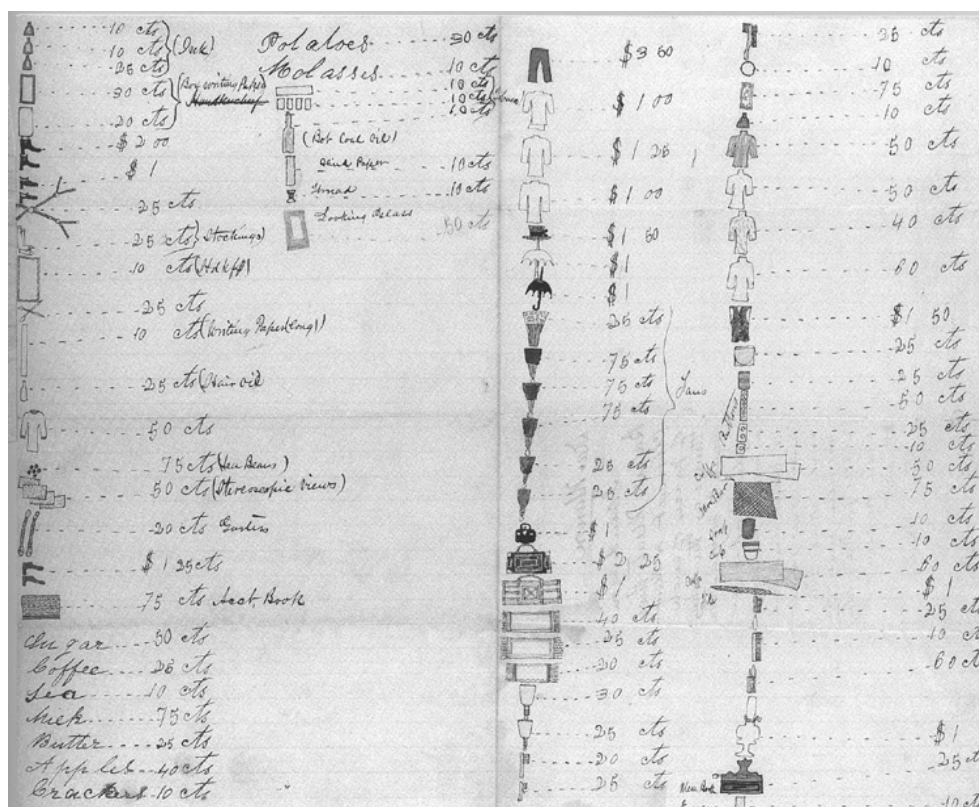 10 cts
10 cts (Ink)
25 cts
30 cts (Box writing Paper)
20 cts
$2 00
$1
25 cts
25 cts (Stockings)
10 cts (Hdkff)
25 cts
10 cts (Writing Paper (long))
25 cts (Hair Oil
50 cts
75 cts
50 cts (Stereoscopic Views)
20 cts Garters
$1 25 cts
75 cts Acct. Book
Sugar 50 cts
Coffee 25 cts
Tea 10 cts
75 cts
Butter 25 cts
Apples 40 cts
Crackers 10 cts
Potatoes 30 cts
Molasses 10 cts
10 cts
10 cts
10 cts
(Bot Coal Oil)
Paper 10 cts
Thread 10 cts
Looking Glass 50 cts
$3 50
$1 00
$1 25
$1 00
$1 50
$1
$1
25 cts
75 cts
75 cts
75 cts
Fans
25 cts
25 cts
$1
$2 25
$1
40 cts
25 cts
20 cts
30 cts
25 cts
20 cts
25 cts
35 cts
10 cts
75 cts
10 cts
50 cts
50 cts
40 cts
60 cts
$1 50
25 cts
25 cts
50 cts
Buttons
25 cts
10 cts
50 cts
75 cts
10 cts
Soap
10 cts
60 cts
$1
25 cts
10 ct
60 ct
$1
25 ct
10 ct